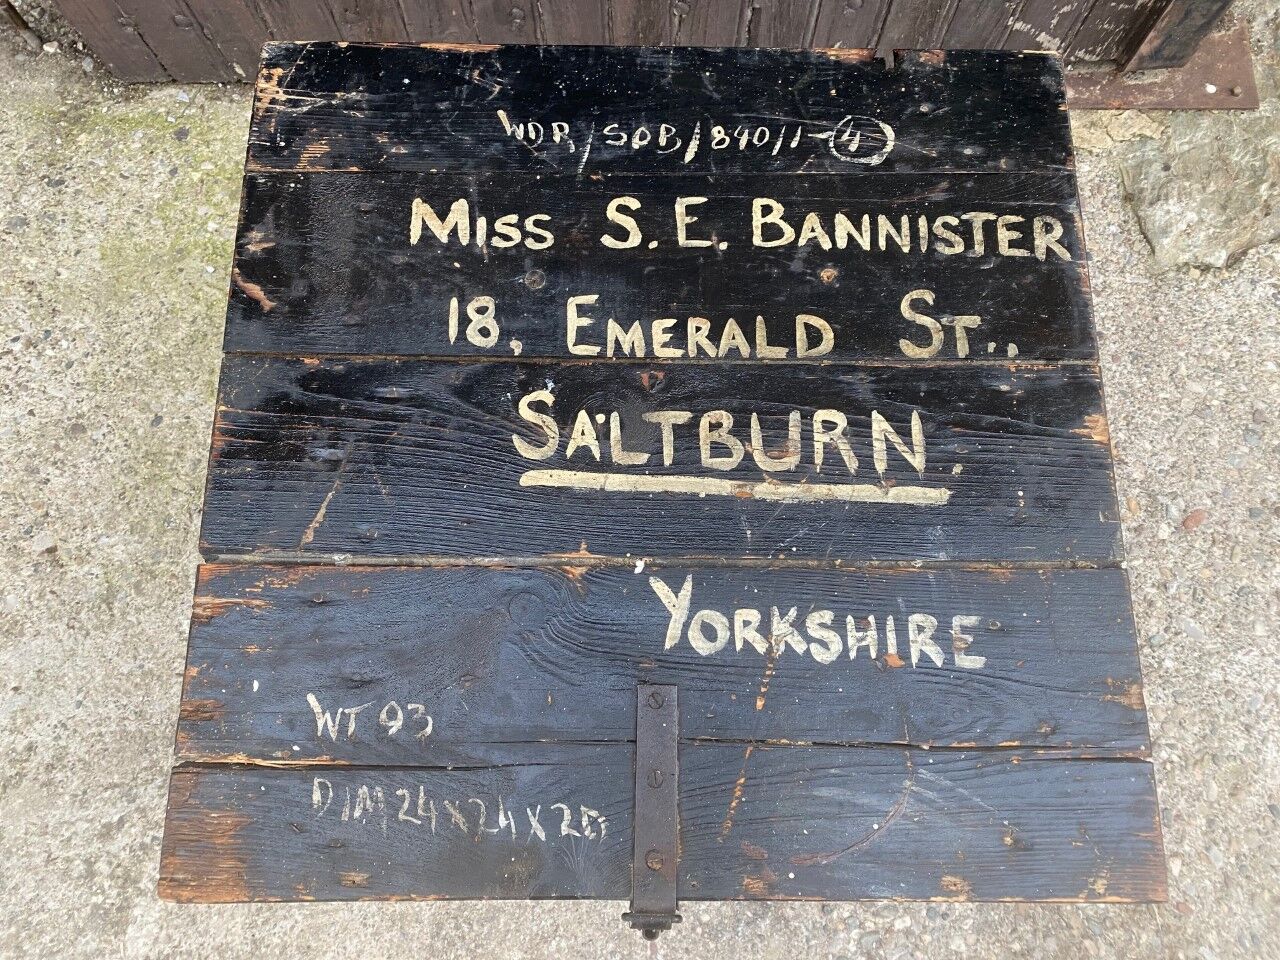 WDR/SOB/840/1-4
MISS S. E. BANNISTER
18, EMERALD ST.,
SALTBURN.
YORKSHIRE
WT 93
DIM 24 X 24 X